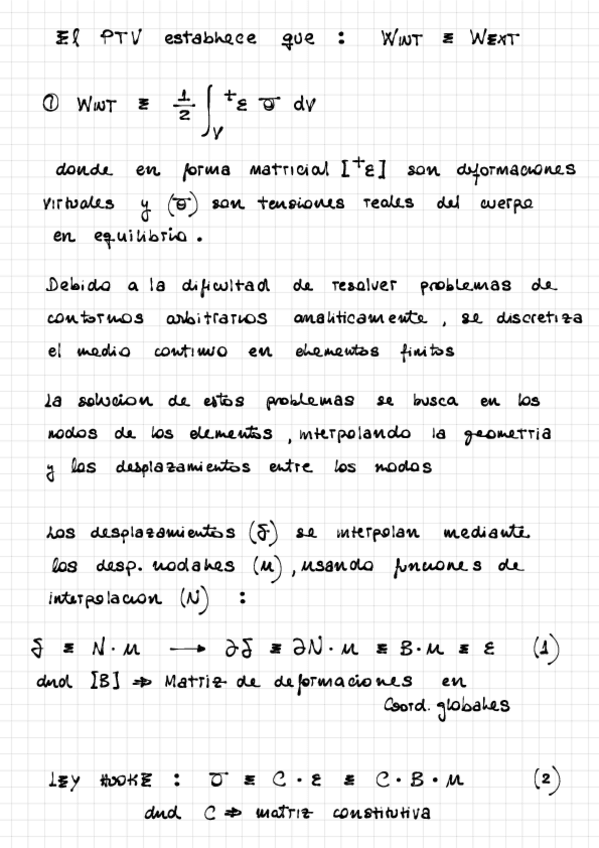 El PTV establece que : WINT = WEXT
① WINT = 1/2 ∫V ᵗε σ dV
donde en forma matricial [ᵗε] son deformaciones
virtuales y (σ) son tensiones reales del cuerpo
en equilibrio.
Debido a la dificultad de resolver problemas de
contornos arbitrarios analiticamente, se discretiza
el medio continuo en elementos finitos
La solucion de estos problemas se busca en los
nodos de los elementos, interpolando la geometria
y los desplazamientos entre los nodos
Los desplazamientos (δ) se interpolan mediante
los desp. nodales (u), usando funciones de
interpolacion (N) :
δ = N · u → ∂δ = ∂N · u = B · u = ε (1)
dnd [B] ⇒ Matriz de deformaciones en
Coord. globales
LEY HOOKE : σ = C · ε = C · B · u (2)
dnd C ⇒ matriz constitutiva